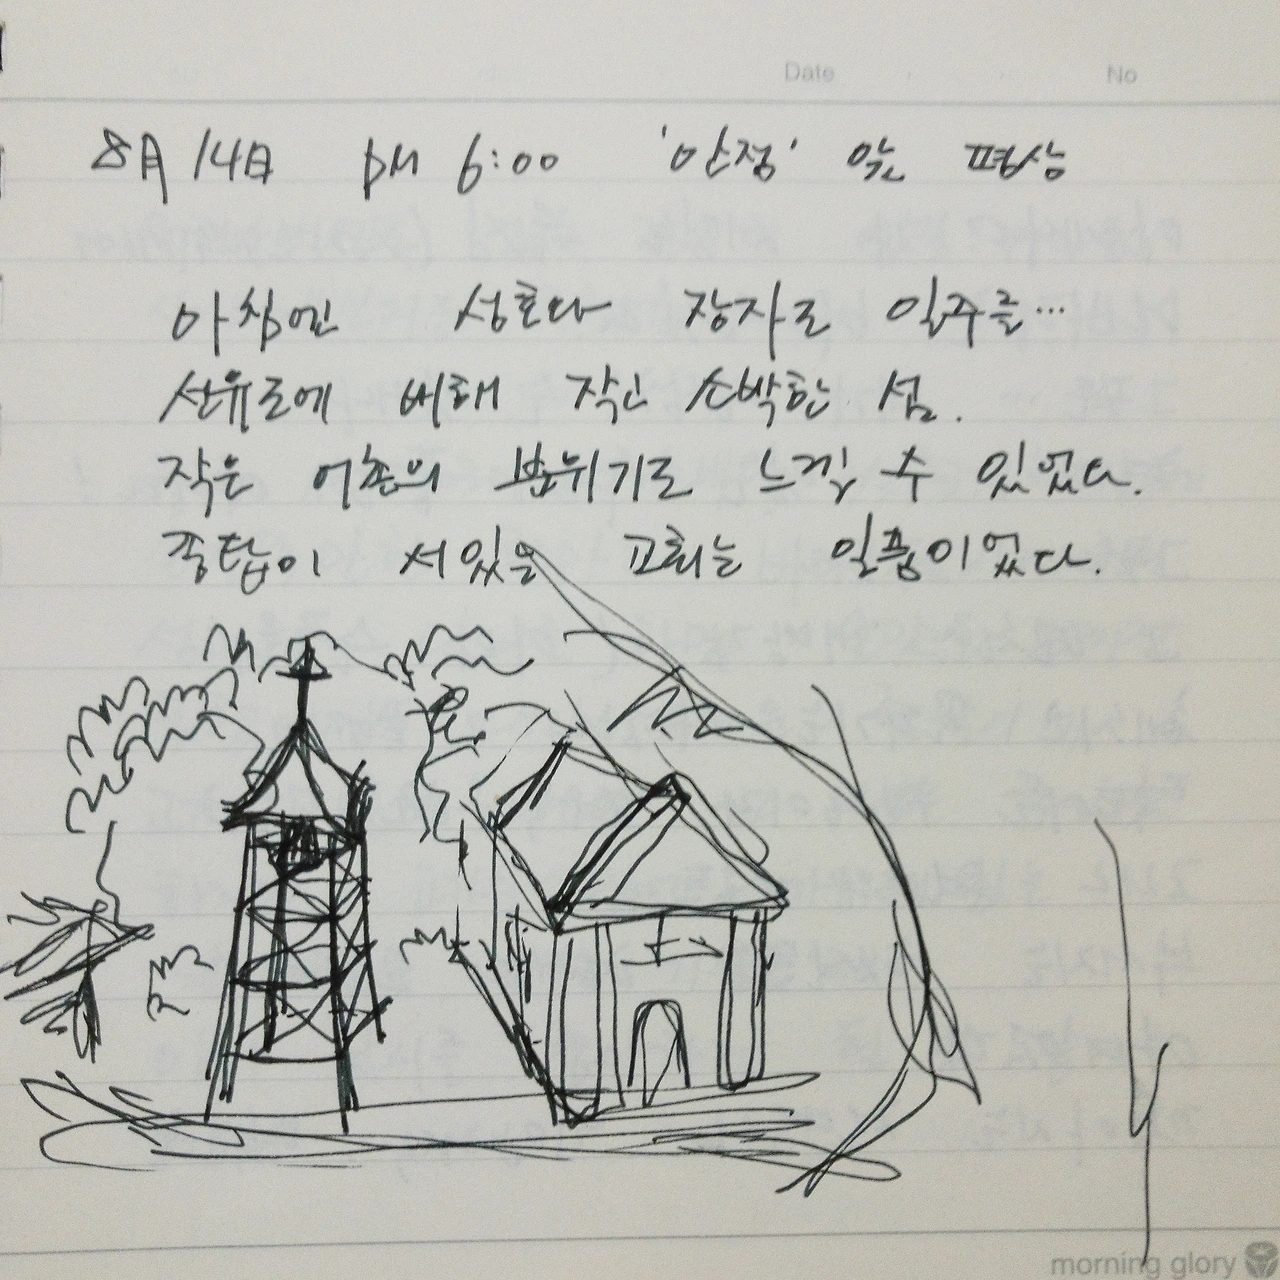 Date No
8月 14日 PM 6:00 '안정' 앞 평상
아침엔 성호와 장자도 일주를...
선유도에 비해 작고 소박한 섬.
작은 어촌의 분위기도 느낄 수 있었다.
종탑이 서있는 교회는 일품이었다.
morning glory